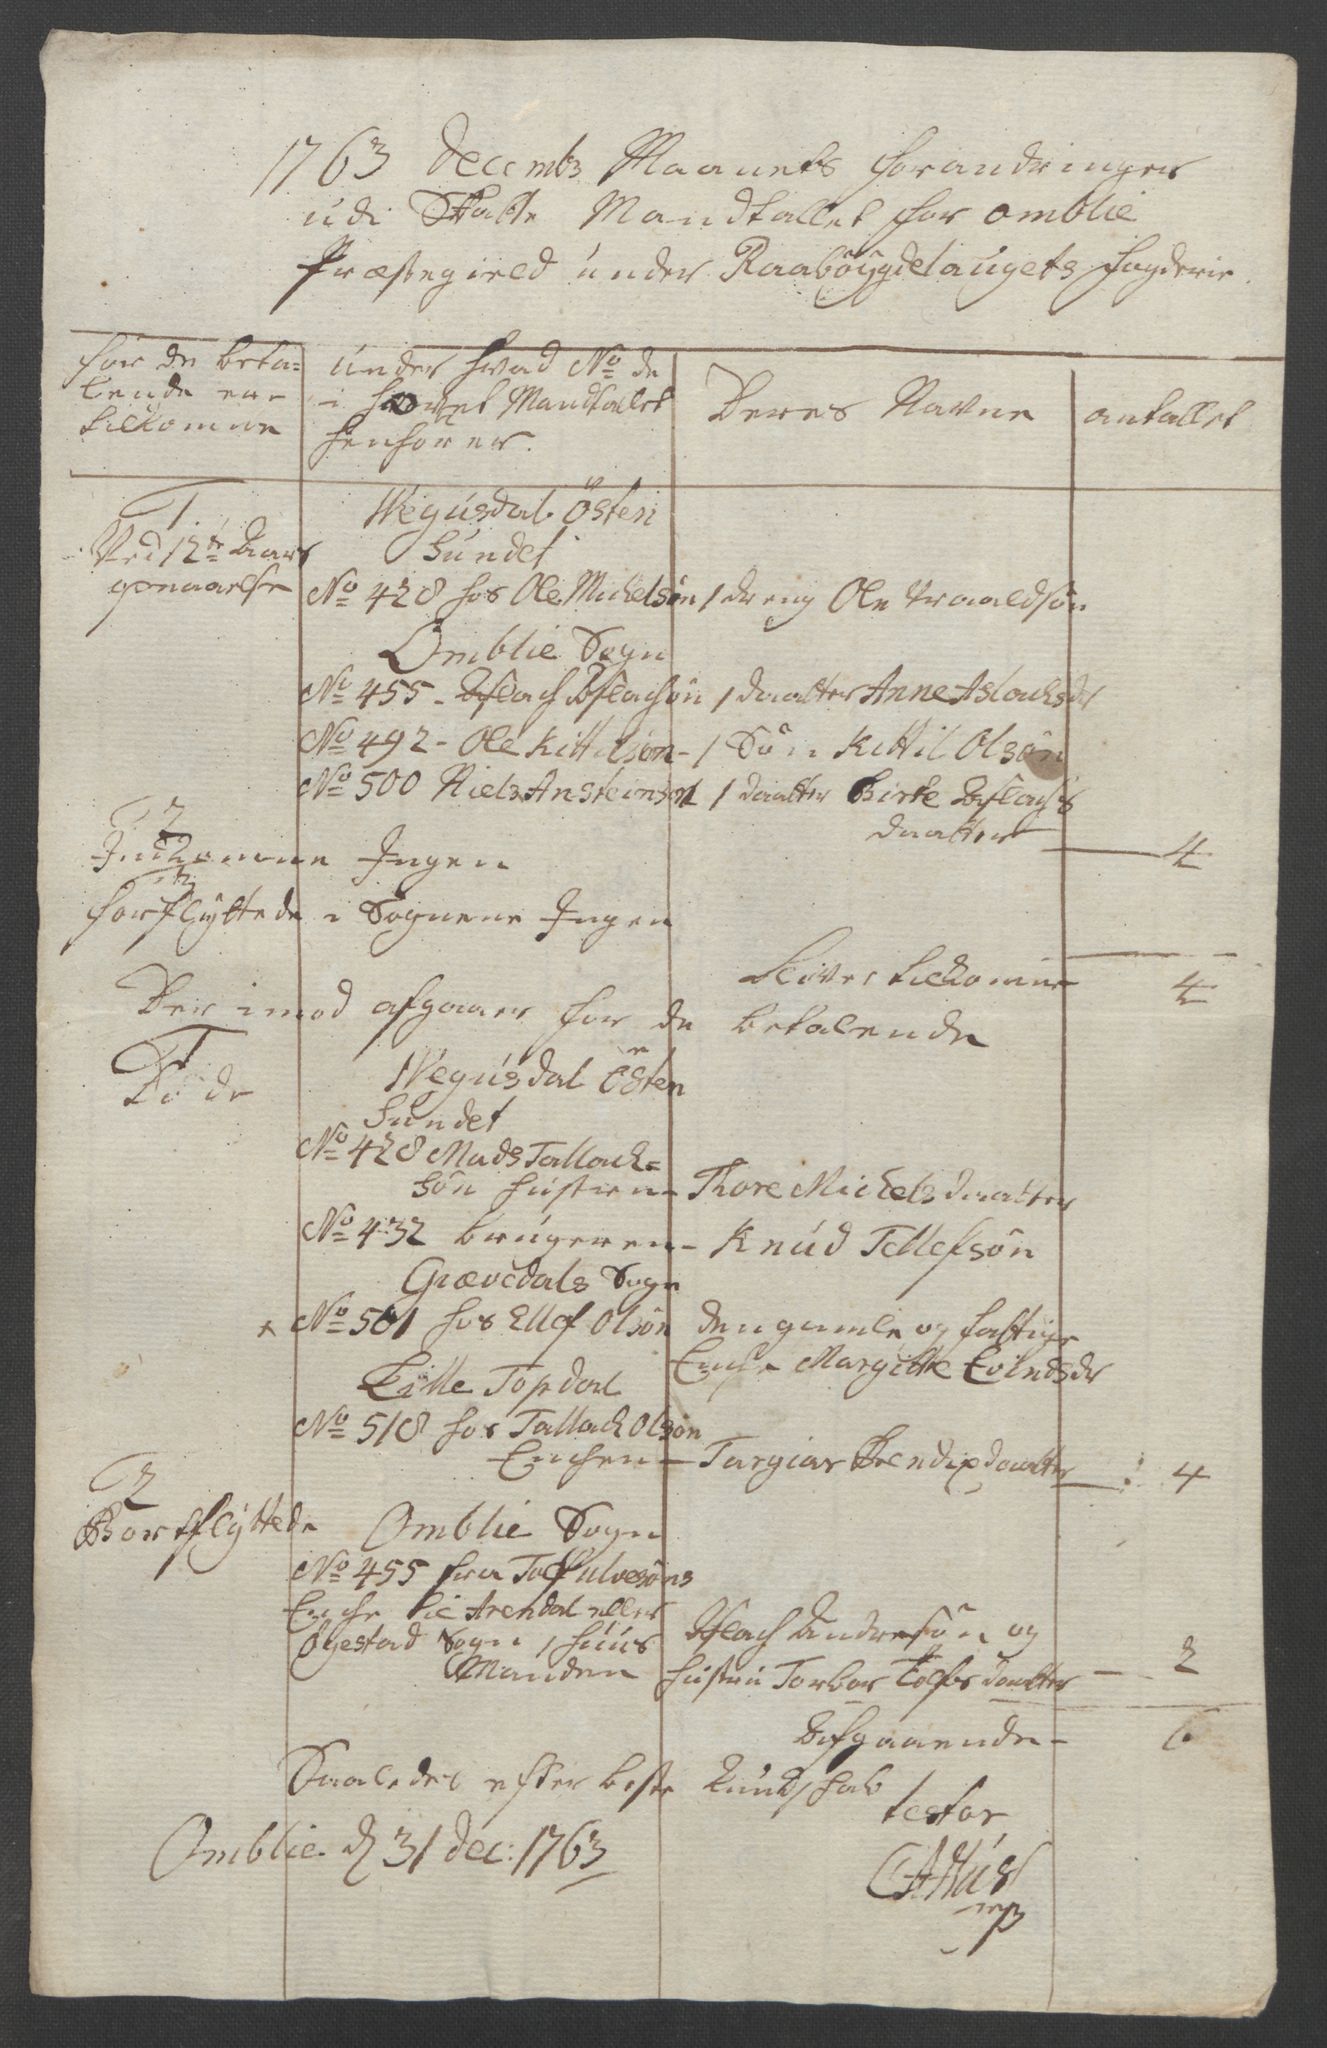 1763 Decembz Maanets forandringer
udi Skatte Mandtallet for Omblie
Præstegield under Raabøygdelaugets fogderie
for de beta=
lende ere
tilkomne
under hvad No de
i hovet Mandtallet
henhører.
Deres Navne
antallet
1
Ved 12te Aars
opnaaelse
Wegusdal Østen
Sundet
No 428 hos Ole Michelsøn 1 dreng Ole Vraaldsøn
Omblie Sogn
No 455 - Aslach Aslachsøn 1 daatter Anne Aslachsdr
No 492 - Ole Kittelsøn - 1 Søn Kittil Olsøn
No 500 Niels Ansteinsøn 1 daatter Birte Aslachs
daatter
4
2
Indkomne Ingen
3
forflyttede i Sognene Ingen
bliver tilkomne 4
Der imod afgaaer for de betalende
1
Døde
Wegusdal Østen
Sundet
No 428 Mads Tallack=
søn hustruen - Thore Michelsdaatter
No 432 brugeren - Knud Tellefsøn
Grævedals Sogn
No 501 hos Ellef Olsøn den gamle og fattige
Enche Margitte Evindsdr
Lille Topdal
No 518 hos Tallack Olsøn
Enchen - Targiær Bendixdaatter : 4
2
Bortflyttede
Omblie Sogn
No 455 fra Tolf Ulvesøns
Enche til Arendal eller
Øyestad Sogn, huus
Manden
Aslach Andresøn og
hustru Torbor Tolfsdaatter - 2
Afgaaende - 6
Saaledes efter beste Kundskab
testor
Omblie d 31 dec: 1763